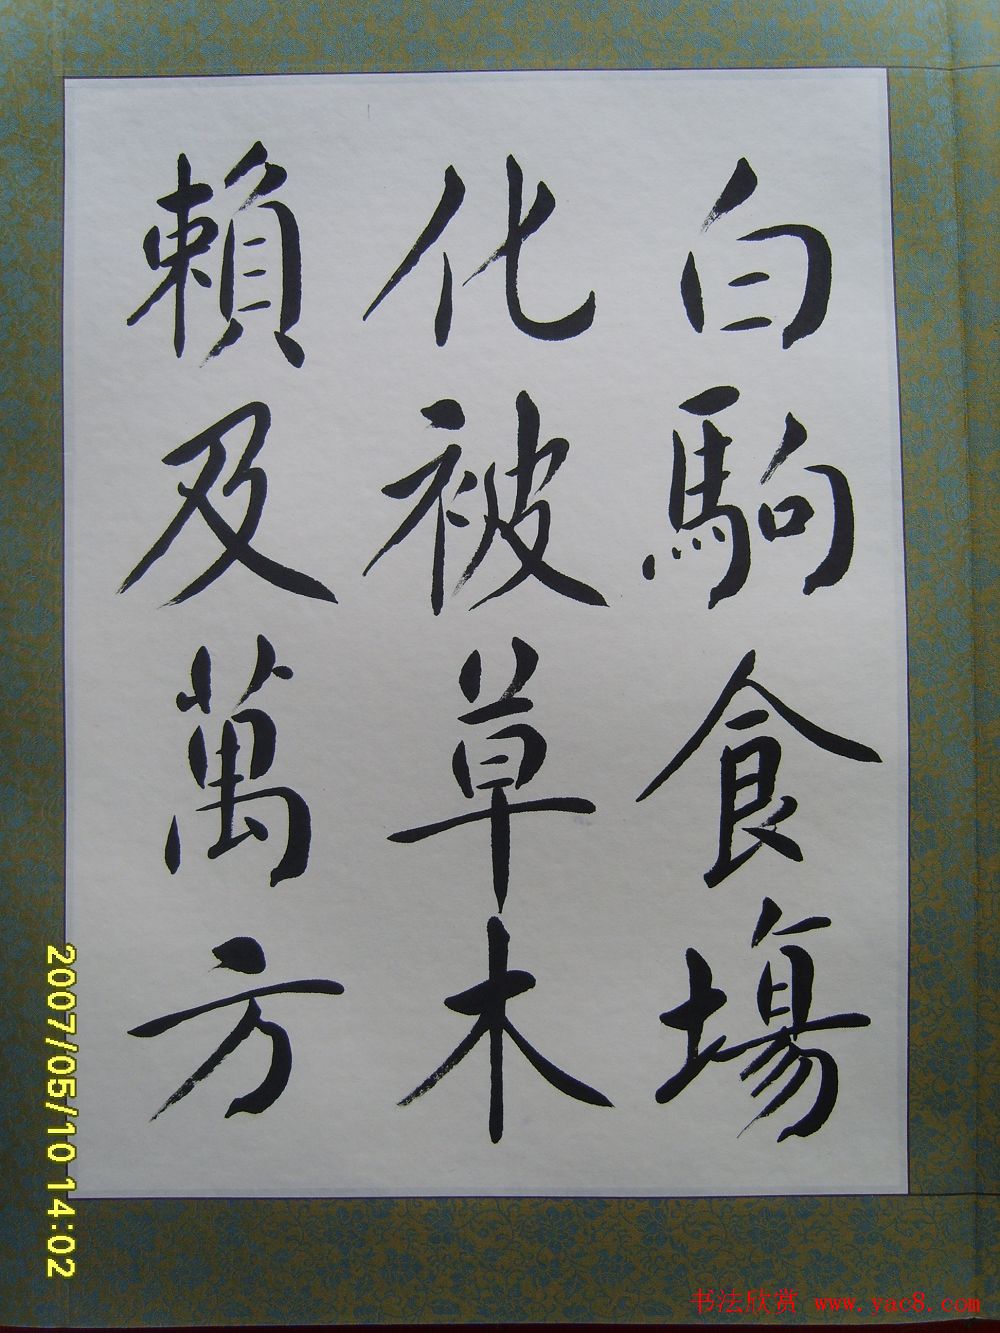 白駒食場
化被草木
賴及萬方
2007/05/10 14:02
书法欣赏 www.yac8.com